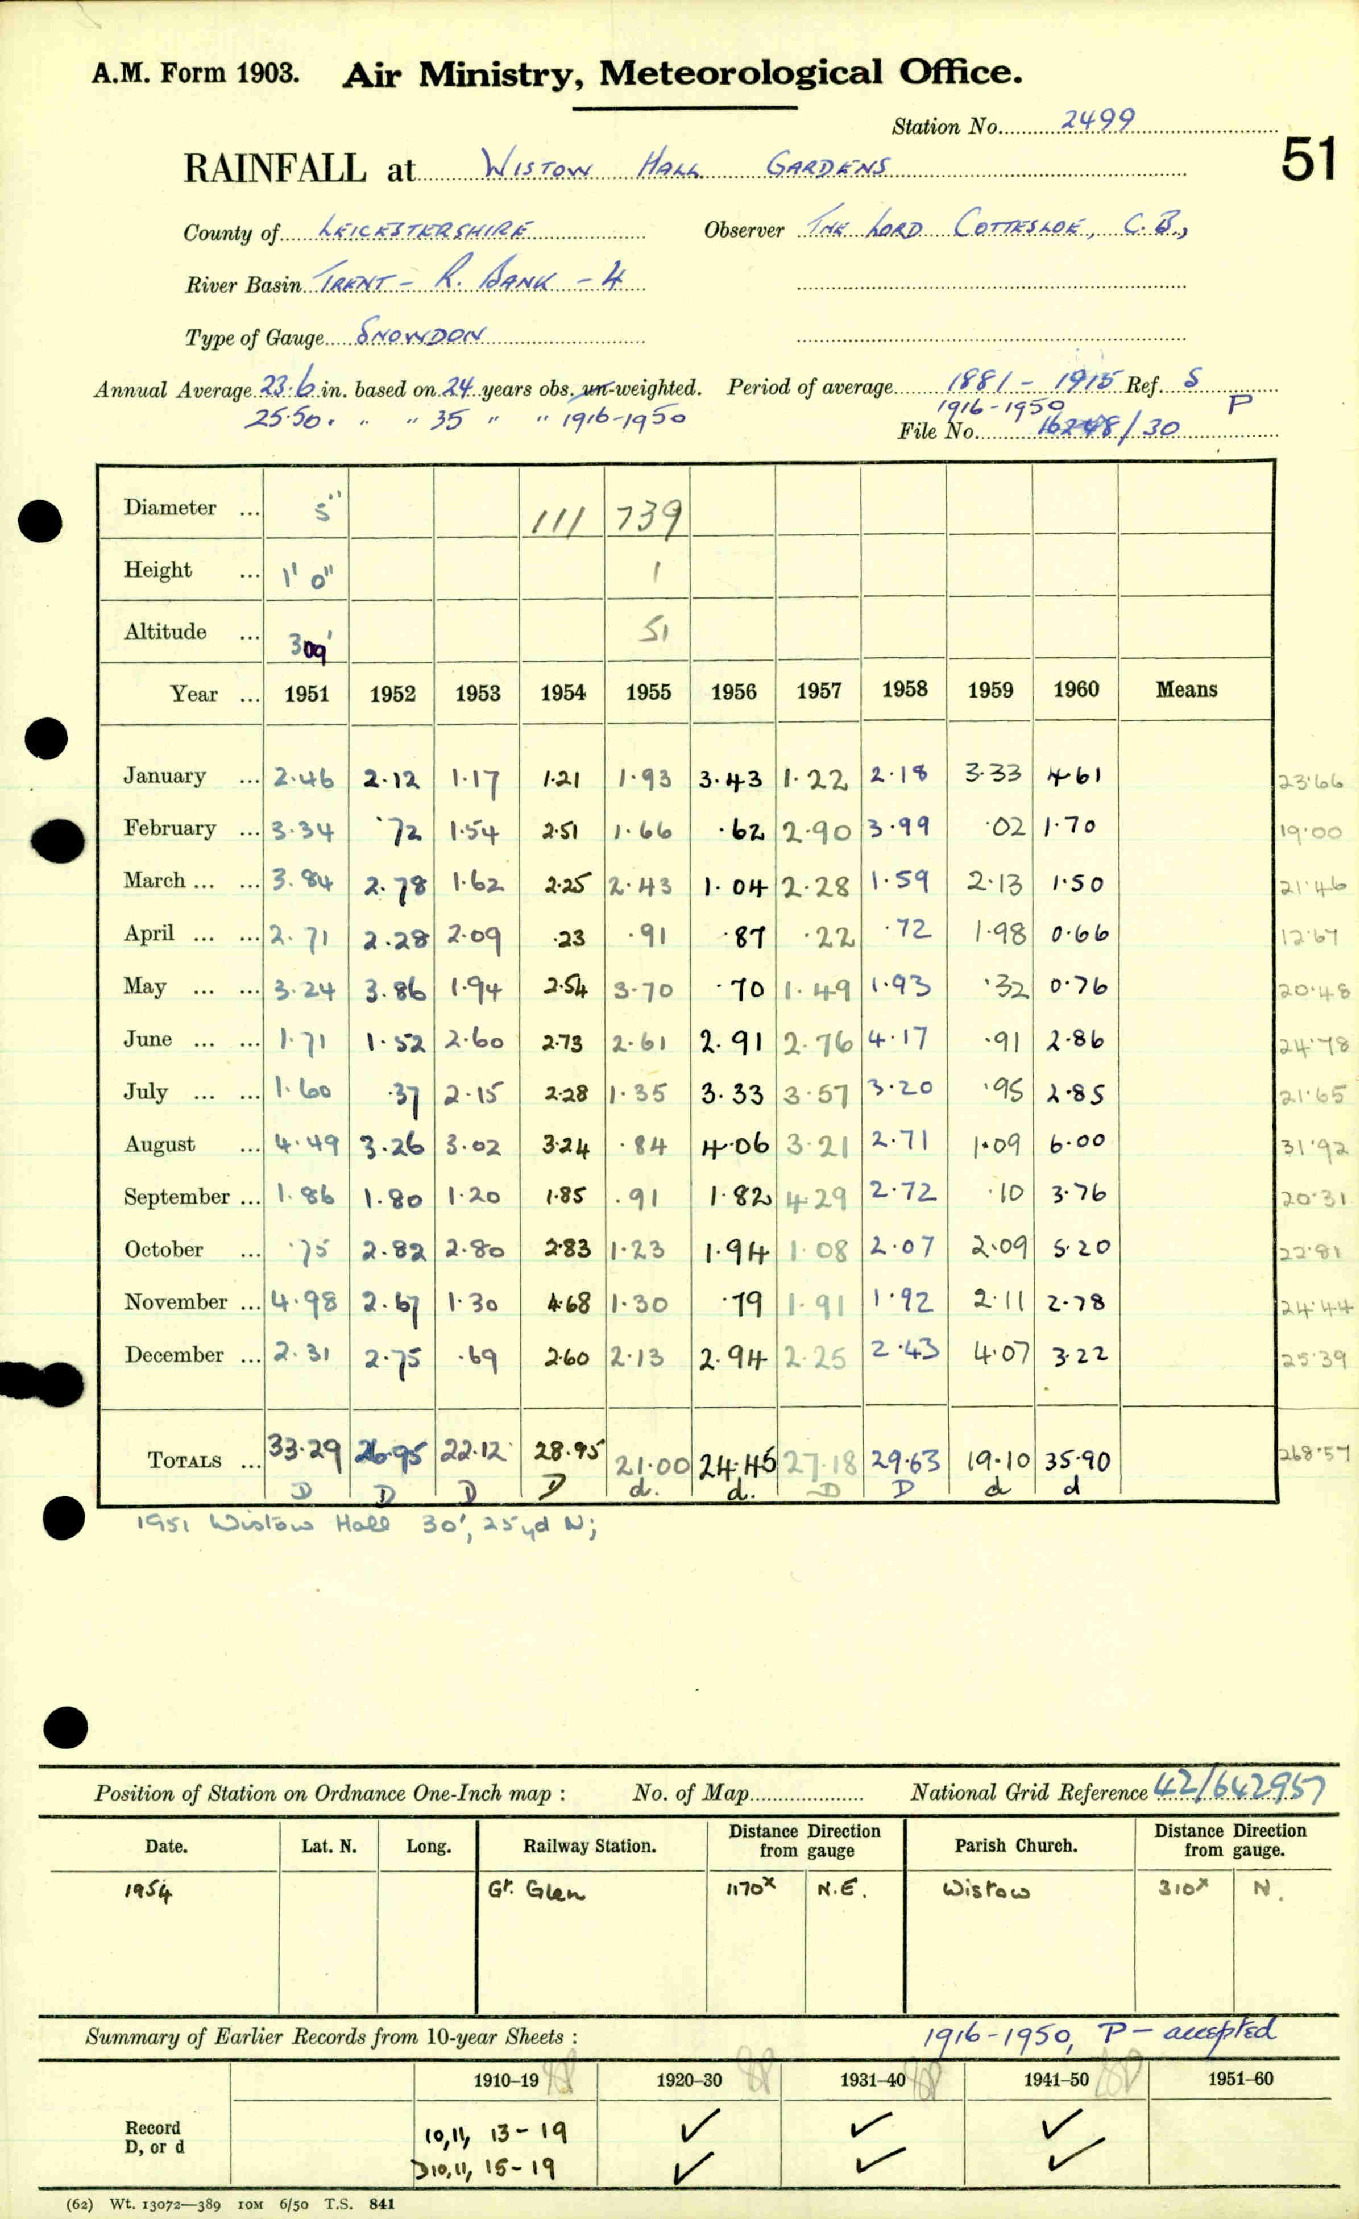 A.M. Form 1903. Air Ministry, Meteorological Office.
Station No. 2499
51
RAINFALL at WISTOW HALL GARDENS
County of LEICESTERSHIRE Observer THE LORD COTTESLOE, C.B.,
River Basin TRENT - R. BANK - 4
Type of Gauge SNOWDON
Annual Average 23.6 in. based on 24 years obs. un-weighted. Period of average 1881 - 1915 Ref. S
25.50. " " 35 " " 1916-1950 1916-1950 P
File No. 16248/30
Diameter ... 5" 111 739
Height ... 1' 0" 1
Altitude ... 309' 51
Year ... 1951 1952 1953 1954 1955 1956 1957 1958 1959 1960 Means
January ... 2.46 2.12 1.17 1.21 1.93 3.43 1.22 2.18 3.33 4.61 23.66
February ... 3.34 .72 1.54 2.51 1.66 .62 2.90 3.99 .02 1.70 19.00
March ... ... 3.84 2.78 1.62 2.25 2.43 1.04 2.28 1.59 2.13 1.50 21.46
April ... ... 2.71 2.28 2.09 .23 .91 .87 .22 .72 1.98 0.66 12.67
May ... ... 3.24 3.86 1.94 2.54 3.70 .70 1.49 1.93 .32 0.76 20.48
June ... ... 1.71 1.52 2.60 2.73 2.61 2.91 2.76 4.17 .91 2.86 24.78
July ... ... 1.60 .37 2.15 2.28 1.35 3.33 3.57 3.20 .95 2.85 21.65
August ... 4.49 3.26 3.02 3.24 .84 4.06 3.21 2.71 1.09 6.00 31.92
September ... 1.86 1.80 1.20 1.85 .91 1.82 4.29 2.72 .10 3.76 20.31
October ... .75 2.82 2.80 2.83 1.23 1.94 1.08 2.07 2.09 5.20 22.81
November ... 4.98 2.67 1.30 4.68 1.30 .79 1.91 1.92 2.11 2.78 24.44
December ... 2.31 2.75 .69 2.60 2.13 2.94 2.25 2.43 4.07 3.22 25.39
TOTALS ... 33.29 26.95 22.12 28.95 21.00 24.45 27.18 29.63 19.10 35.90 268.57
D D D D d. d. D D d d
1951 Wistow Hall 30', 25yd N;
Position of Station on Ordnance One-Inch map : No. of Map National Grid Reference 42/642957
Date. Lat. N. Long. Railway Station. Distance from gauge Direction Parish Church. Distance from gauge. Direction
1954 Gt. Glen 1170x N.E. Wistow 310x N.
Summary of Earlier Records from 10-year Sheets : 1916-1950, P - accepted
1910–19 1920–30 1931–40 1941–50 1951–60
Record 10, 11, 13 - 19 ✓ ✓ ✓
D, or d D10, 11, 15 - 19 ✓ ✓ ✓
(62) Wt. 13072—389 10M 6/50 T.S. 841